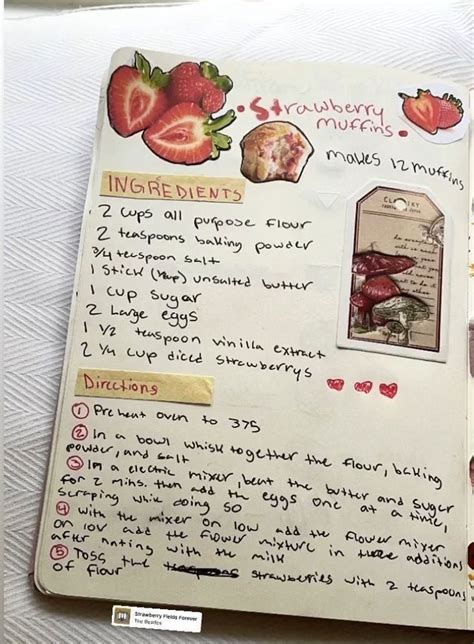 • Strawberry
Muffins •
makes 12 muffins
INGREDIENTS
2 cups all purpose flour
2 teaspoons baking powder
3/4 teaspoon salt
1 stick unsalted butter
1 cup sugar
2 Large eggs
1 1/2 teaspoon vinilla extract
2 1/4 cup diced strawberrys
Directions
① Preheat oven to 375
② In a bowl whisk together the flour, baking
powder, and salt
③ In a electric mixer, beat the butter and suger
for 2 mins. then add the eggs one at a time,
scraping while doing so
④ with the mixer on low add the flower mixer
on low add the flower mixture in additions
after with the milk
⑤ Toss the strawberries with 2 teaspoons
of flour
Strawberry Fields Forever
The Beatles